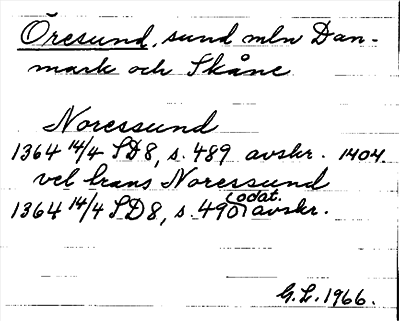 Öresund, sund mln Dan-
mark och Skåne
Noressund
1364 14/4 SD8, s. 489 avskr. 1404.
vel trans Noressund
1364 14/4 SD8, s. 490 (odat. avskr.
G.L. 1966.